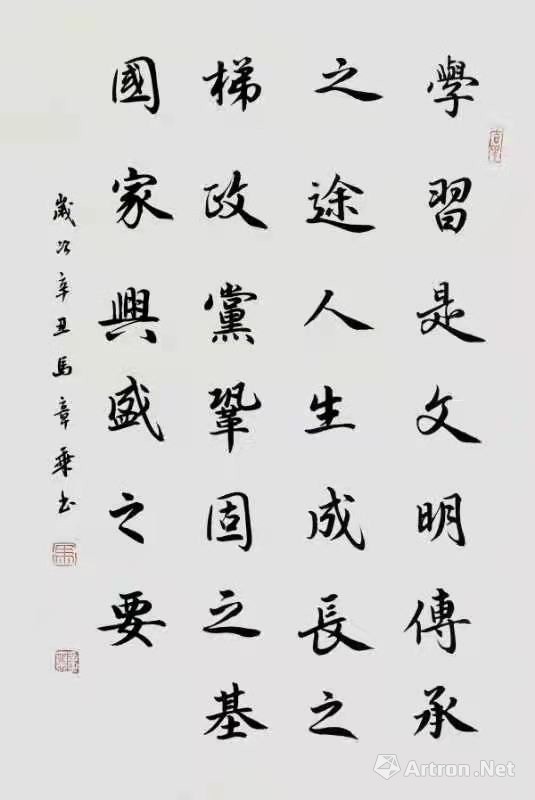 學習是文明傳承
之途人生成長之
梯政黨鞏固之基
國家興盛之要
歲次辛丑馬章乘书
Artron.Net